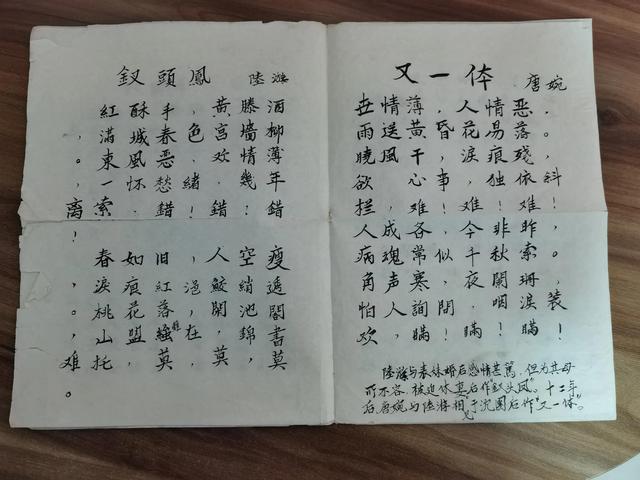 釵頭鳳 陸游
紅酥手，黄滕酒，
滿城春色宮墻柳。
東風恶，欢情薄。
一怀愁緒，幾年離
索。錯！錯！錯！
春如旧，人空瘦，
淚痕紅浥鮫綃透。
桃花落，閑池閣。
山盟雖在，錦書难
托。莫，莫，莫！
又一体 唐婉
世情薄，人情恶，
雨送黄昏花易落。
曉風干，淚痕殘。
欲心事，独依斜
拦。难！难！难！
人成各，今非昨，
病魂常似秋千索。
角声寒，夜闌珊。
怕人詢問，咽淚装
欢。瞞！瞞！瞞！
陸游与表妹婚后感情甚篤，但为其母
所不容，被迫休妻后作“釵头凤”。十二年
后，唐婉与陸游相于沈園后作“又一体”。